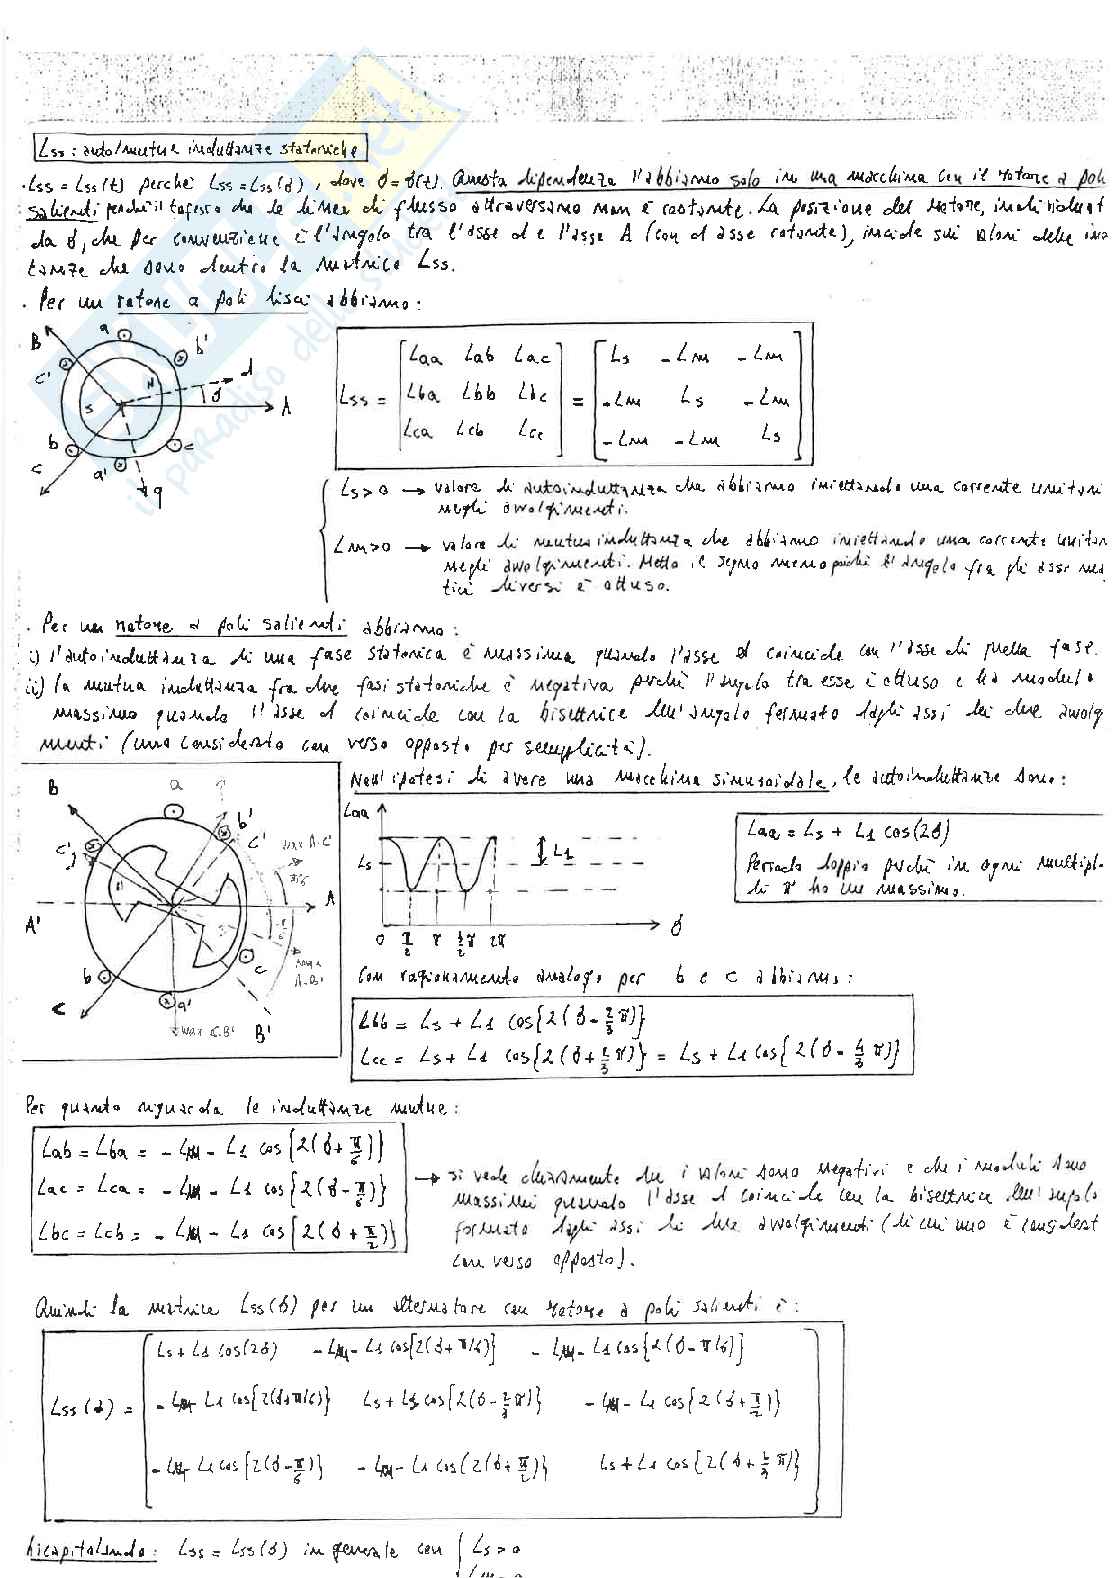 Lss : auto/mutue induttanze statoriche
· Lss = Lss(t) perché Lss = Lss(δ), dove δ = δ(t). Questa dipendenza l'abbiamo solo in una macchina con il rotore a poli
salienti perché il tragitto che le linee di flusso attraversano non è costante. La posizione del rotore, individuat
da δ, che per convenzione è l'angolo tra l'asse d e l'asse A (con d asse rotante), incide sui valori delle indu
tanze che sono dentro la matrice Lss.
· Per un rotore a poli lisci abbiamo:
B a b' c' N d δ A S b c C a' q
Lss = [Laa Lab Lac] = [Ls -Lm -Lm]
[Lba Lbb Lbc] [-Lm Ls -Lm]
[Lca Lcb Lcc] [-Lm -Lm Ls]
Ls>0 → valore di autoinduttanza che abbiamo iniettando una corrente unitari
negli avvolgimenti.
Lm>0 → valore di mutua induttanza che abbiamo iniettando una corrente unitar
negli avvolgimenti. Metto il segno meno poiché l'angolo fra gli assi ma
tici diversi è ottuso.
· Per un rotore a poli salienti abbiamo:
i) l'autoinduttanza di una fase statorica è massima quando l'asse d coincide con l'asse di quella fase.
ii) la mutua induttanza fra due fasi statoriche è negativa perché l'angolo tra esse è ottuso e ha modulo
massimo quando l'asse d coincide con la bisettrice dell'angolo formato dagli assi dei due avvolg
menti (uno considerato con verso opposto per semplicità).
Nell'ipotesi di avere una macchina sinusoidale, le autoinduttanze sono:
B a b' c' c' max A·C' π/6 N A A' b c C a' B' max A·B' max C·B'
Laa Ls L1 0 π/2 π 3/2 π 2π δ
Laa = Ls + L1 cos(2δ)
Periodo doppio perché in ogni multipl
di π ho un massimo.
Con ragionamento analogo per b e c abbiamo:
Lbb = Ls + L1 cos{2(δ - 2/3 π)}
Lcc = Ls + L1 cos{2(δ + 2/3 π)} = Ls + L1 cos{2(δ - 4/3 π)}
Per quanto riguarda le induttanze mutue:
Lab = Lba = -LM - L1 cos{2(δ + π/6)}
Lac = Lca = -LM - L1 cos{2(δ - π/6)}
Lbc = Lcb = -LM - L1 cos{2(δ + π/2)}
→ si vede chiaramente che i valori sono negativi e che i moduli sono
massimi quando l'asse d coincide con la bisettrice dell'angolo
formato dagli assi dei due avvolgimenti (di cui uno è considerat
con verso opposto).
Quindi la matrice Lss(δ) per un alternatore con rotore a poli salienti è:
Lss(δ) = [Ls + L1 cos(2δ) -LM - L1 cos{2(δ + π/6)} -LM - L1 cos{2(δ - π/6)}]
[-LM - L1 cos{2(δ + π/6)} Ls + L1 cos{2(δ - 2/3 π)} -LM - L1 cos{2(δ + π/2)}]
[-LM - L1 cos{2(δ - π/6)} -LM - L1 cos{2(δ + π/2)} Ls + L1 cos{2(δ + 2/3 π)}]
Ricapitolando: Lss = Lss(δ) in generale con { Ls > 0